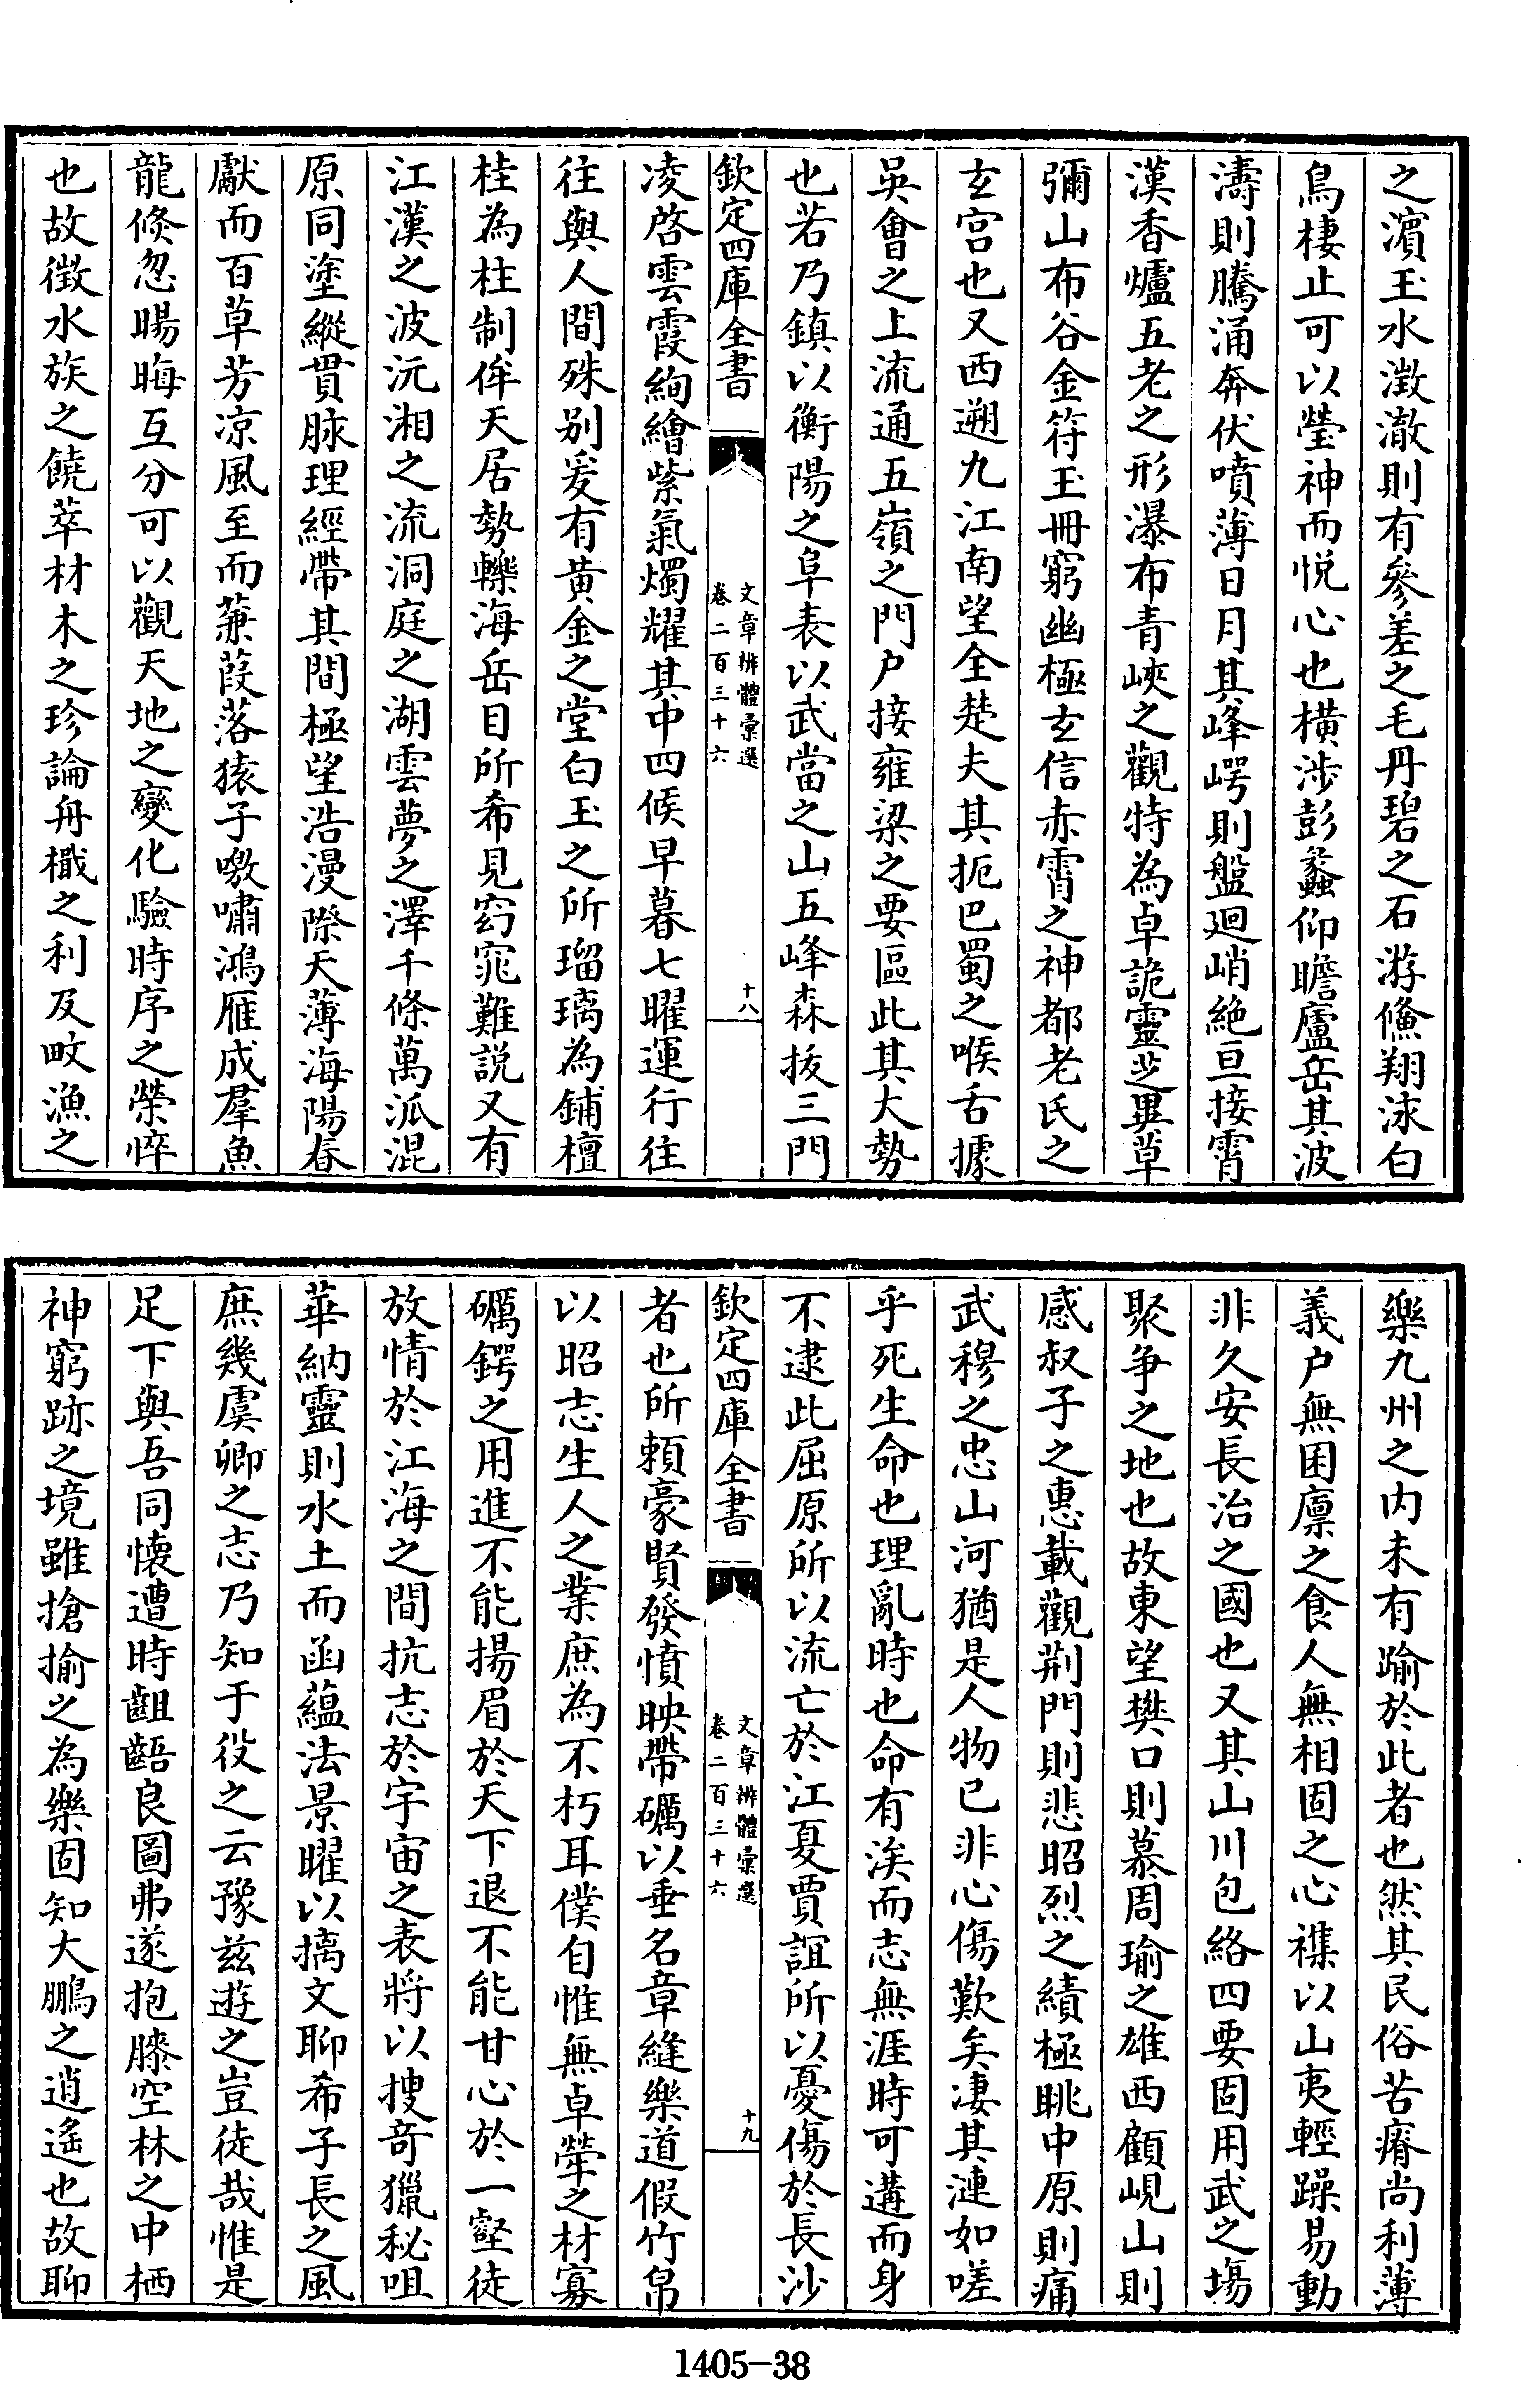 之濱玉水澂澈則有參差之毛丹碧之石游鯈翔泳白
鳥棲止可以瑩神而悦心也横涉彭蠡仰瞻廬岳其波
濤則騰涌奔伏噴薄日月其峰崿則盤迴峭絶亘接霄
漢香爐五老之形瀑布青峽之觀特為卓詭靈芝異草
彌山布谷金符玉冊窮幽極玄信赤霄之神都老氏之
玄宫也又西遡九江南望全楚夫其扼巴蜀之喉舌據
吳會之上流通五嶺之門户接雍梁之要區此其大勢
也若乃鎮以衡陽之阜表以武當之山五峰森拔三門
欽定四庫全書
文章辨體彙選
卷二百三十六
十八
凌啓雲霞絢繪紫氣燭耀其中四候早暮七曜運行往
往與人間殊别爰有黄金之堂白玉之所瑠璃為鋪檀
桂為柱制侔天居勢轢海岳目所希見窈窕難説又有
江漢之波沅湘之流洞庭之湖雲夢之澤千條萬派混
原同塗縱貫脉理經帶其間極望浩漫際天薄海陽春
獻而百草芳凉風至而蒹葭落猿子嗷嘯鴻雁成羣魚
龍倏忽暘晦互分可以觀天地之變化驗時序之榮悴
也故徵水族之饒萃材木之珍論舟檝之利及畋漁之
樂九州之内未有踰於此者也然其民俗苦瘠尚利薄
義户無囷廪之食人無相固之心襍以山夷輕躁易動
非久安長治之國也又其山川包絡四要固用武之塲
聚争之地也故東望樊口則慕周瑜之雄西顧峴山則
感叔子之惠載觀荆門則悲昭烈之績極眺中原則痛
武穆之忠山河猶是人物已非心傷歎矣凄其漣如嗟
乎死生命也理亂時也命有涘而志無涯時可遘而身
不逮此屈原所以流亡於江夏賈誼所以憂傷於長沙
欽定四庫全書
文章辨體彙選
卷二百三十六
十九
者也所賴豪賢發憤映帶礪以垂名章縫樂道假竹帛
以昭志生人之業庶為不朽耳僕自惟無卓犖之材寡
礪鍔之用進不能揚眉於天下退不能甘心於一壑徒
放情於江海之間抗志於宇宙之表將以搜竒獵秘咀
華納靈則水土而函藴法景曜以摛文聊希子長之風
庶幾虞卿之志乃知于役之云豫兹遊之豈徒哉惟是
足下與吾同懷遭時齟齬良圖弗遂抱膝空林之中栖
神窮跡之境雖搶揄之為樂固知大鵬之逍遙也故聊
1405-38